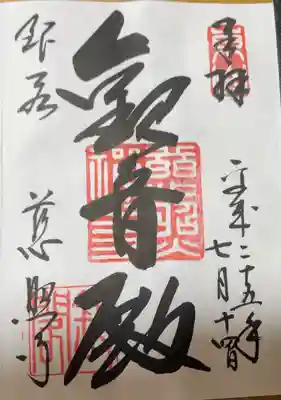 奉拝
平成二十五年
七月十四日
観音殿
銀閣
慈照寺